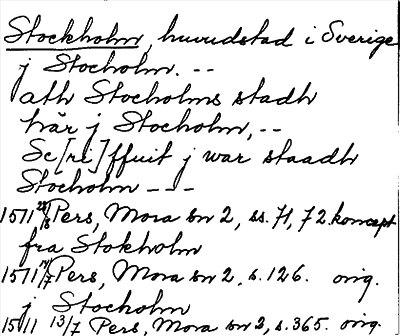 Stockholm, huvudstad i Sverige
j Stocholm. --
ath Stocholms stadh
här j Stocholm, --
Sc[ri]ffuit j war staadh
Stocholm ---
1511 28/8 Pers, Mora sn 2, ss. 71, 72. koncept
fra Stokholm
1511 14/7 Pers, Mora sn 2, s. 126. orig.
j Stocholm
1511 13/7 Pers, Mora sn 2, s. 365. orig.